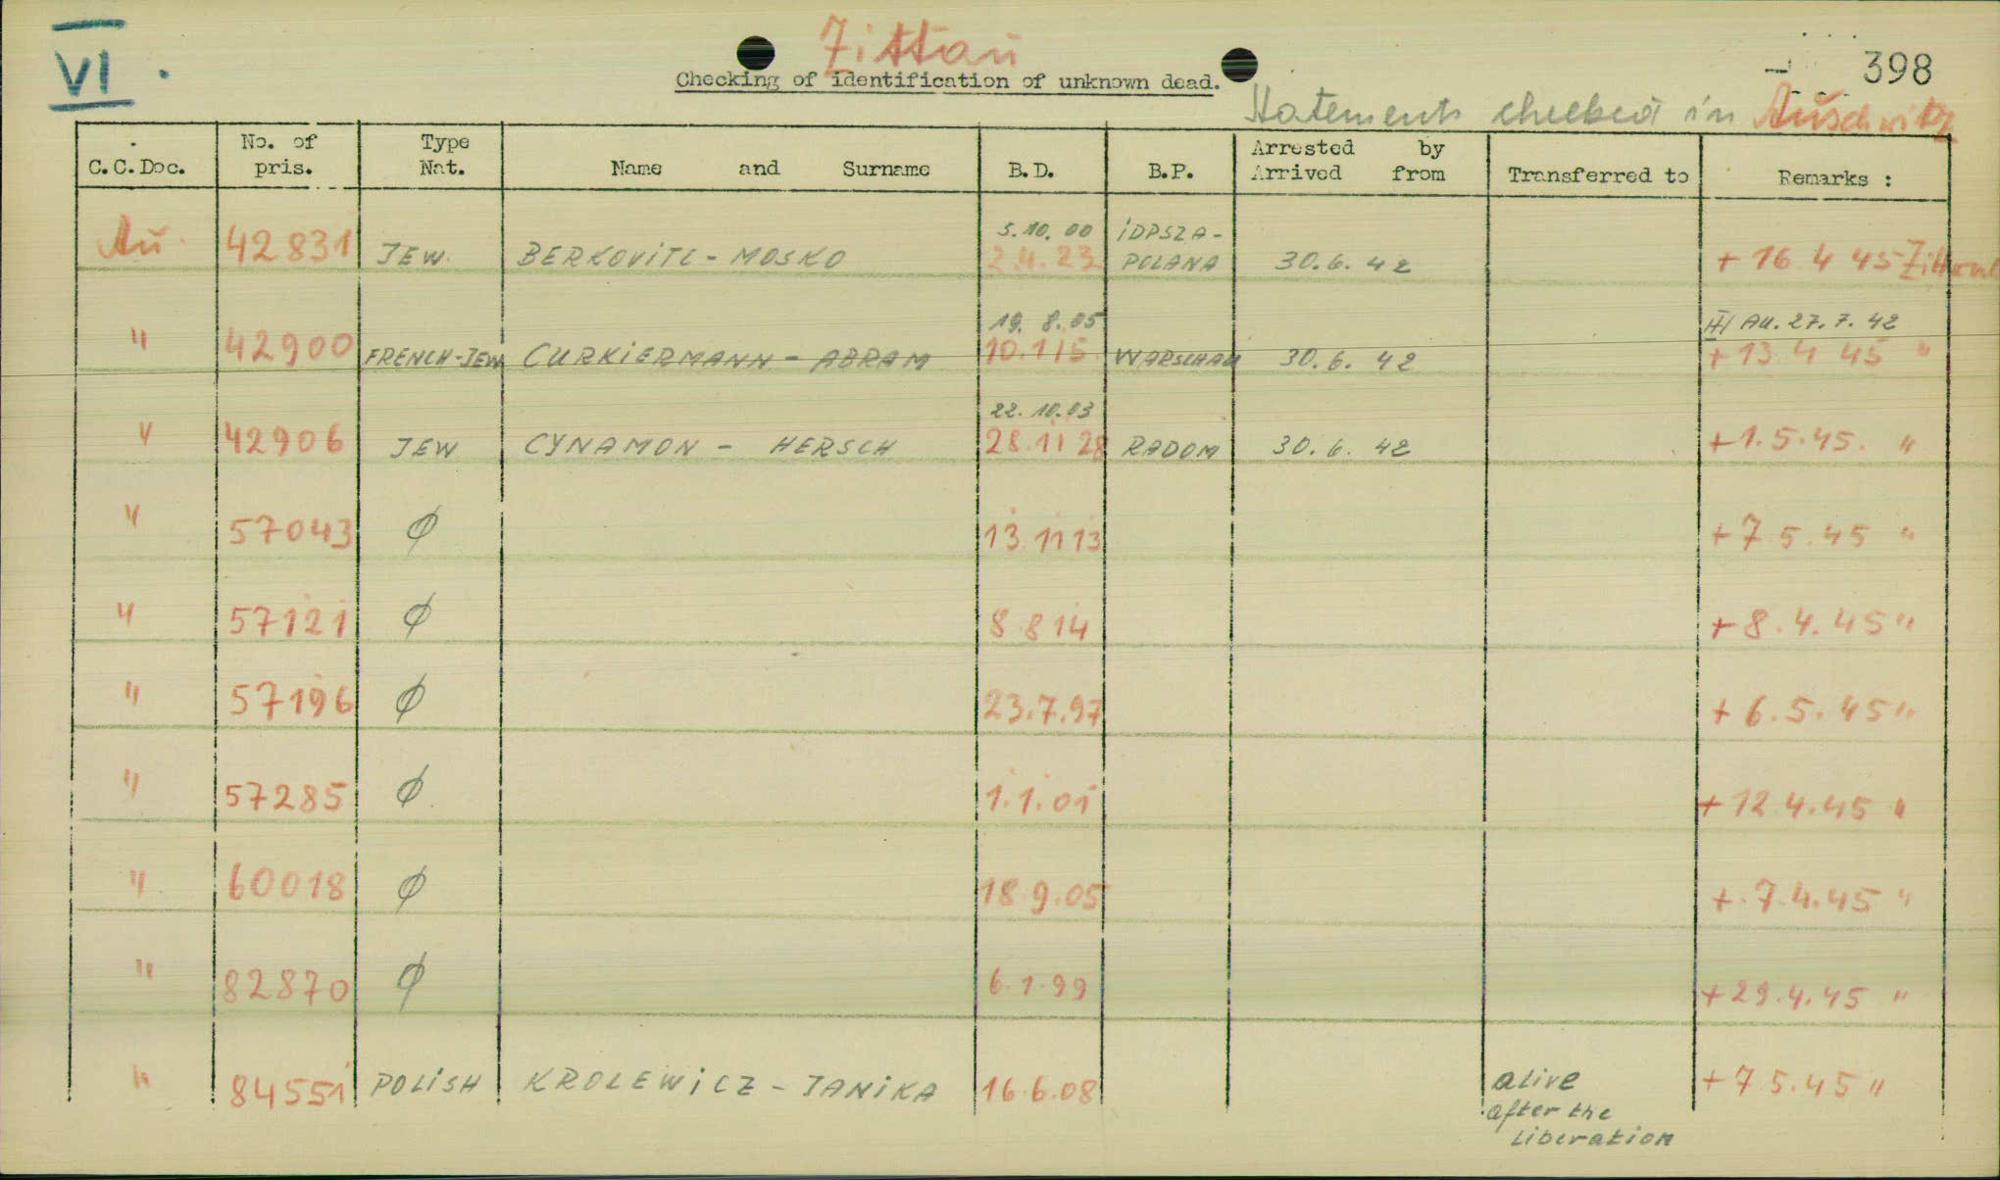 VI.
Zittau
398
Checking of identification of unknown dead.
Statements checked in Auschwitz
C.C.Doc. No. of pris. Type Nat. Name and Surname B.D. B.P. Arrested by Arrived from Transferred to Remarks :
5.10.00 IDPSZA-
Au. 42831 JEW. BERKOVITC - MOSKO 2.4.23 POLANA 30.6.42 + 16 4 45 Zittau
19. 8.05 III/ Au. 27.7.42
" 42900 FRENCH-JEW CURKIERMANN - ABRAM 10.1 15 WARSCHAU 30.6.42 + 13 4 45 "
22.10.03
" 42906 JEW CYNAMON - HERSCH 28.11 28 RADOM 30.6.42 + 1.5.45. "
" 57043 Ø 13.11 13 + 7 5.45 "
" 57121 Ø 8 8 14 + 8.4.45 "
" 57196 Ø 23.7.97 + 6.5.45 "
" 57285 Ø 1.1.01 + 12.4.45 "
" 60018 Ø 18.9.05 + 7.4.45 "
" 82870 Ø 6.1.99 + 29.4.45 "
" 84551 POLISH KROLEWICZ - JANIKA 16.6.08 alive + 7 5.45 "
after the
liberation